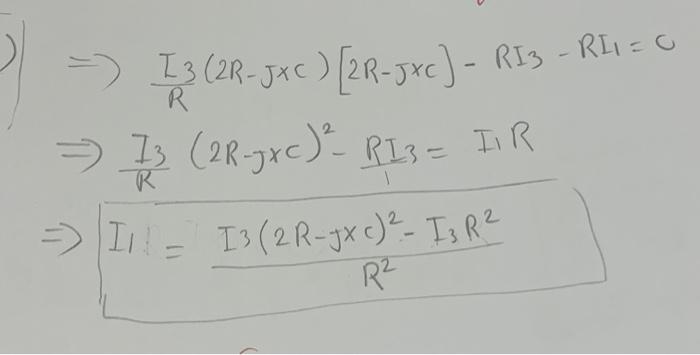 => I3/R (2R-jxc) [2R-jxc] - RI3 - RI1 = 0
=> I3/R (2R-jxc)² - RI3/1 = I1R
=> I1 = I3(2R-jxc)² - I3R² / R²